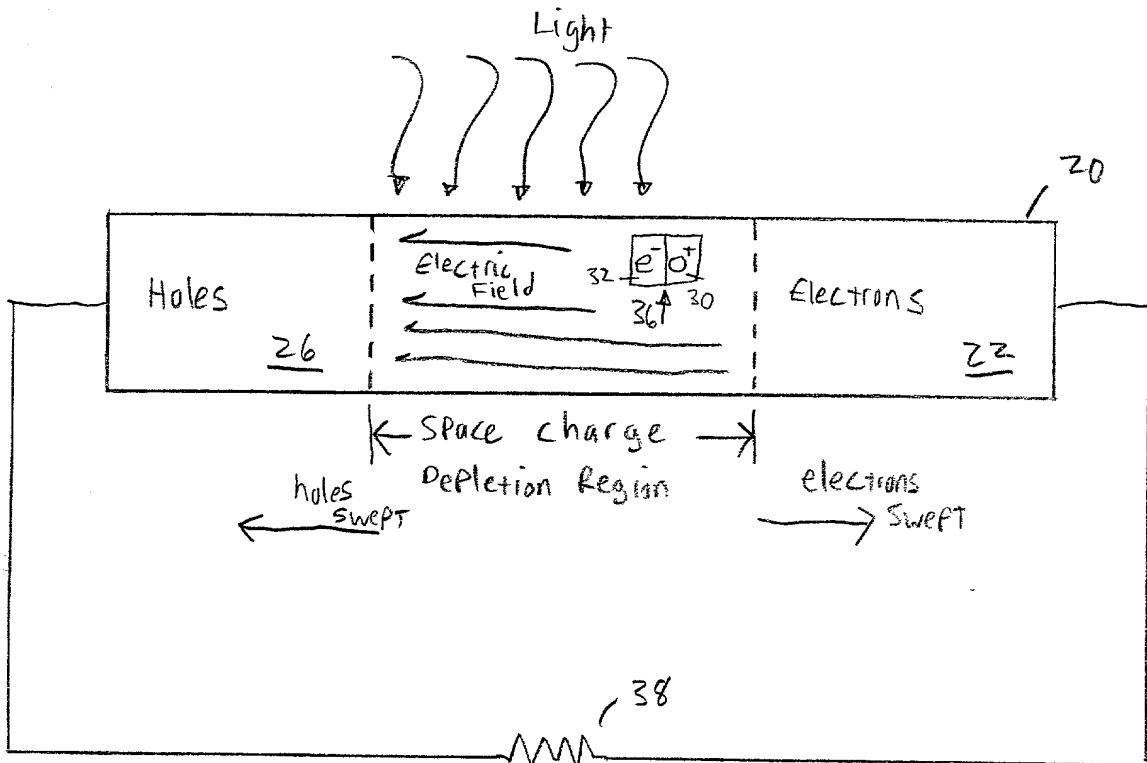 Light
20
Holes
26
Electric
Field
e⁻ o⁺
32
30
36
Electrons
22
Space charge
Depletion Region
holes
swept
electrons
swept
38